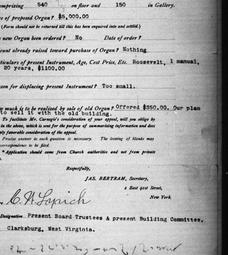 mprizing 540 on floor and 150 in Gallery.
e of proposed Organ? $5,000.00
(Form should not be returned till this has been enquired into and settled)
new Organ been Ordered? No Date of order?
ount already raised toward purchase of Organ? Nothing
ticulars of present Instrument, Age, Cost Price, Etc. Roosevelt, 1 manual,
20 years, $1100.00
son for displacing present Instrument? Too small.
much is to be realized by sale of old Organ? Offered $350.00. Our plan
to sell it with the old building.
To facilitate Mr. Carnegie's consideration of any appeal, will you oblige by
in the above, which is sent for the purpose of summarizing information and
ly favorable consideration of the appeal.
Precise answer to each question is necessary. The issuing of blanks may
correspondence to be filed.
* Application should come from Church authorities and not from private
Respectfully,
JAS. BERTRAM, Secretary,
2 East 91st Street,
New York.
Designation Present Board Trustees & present Building Committee,
Clarksburg, West Virginia.